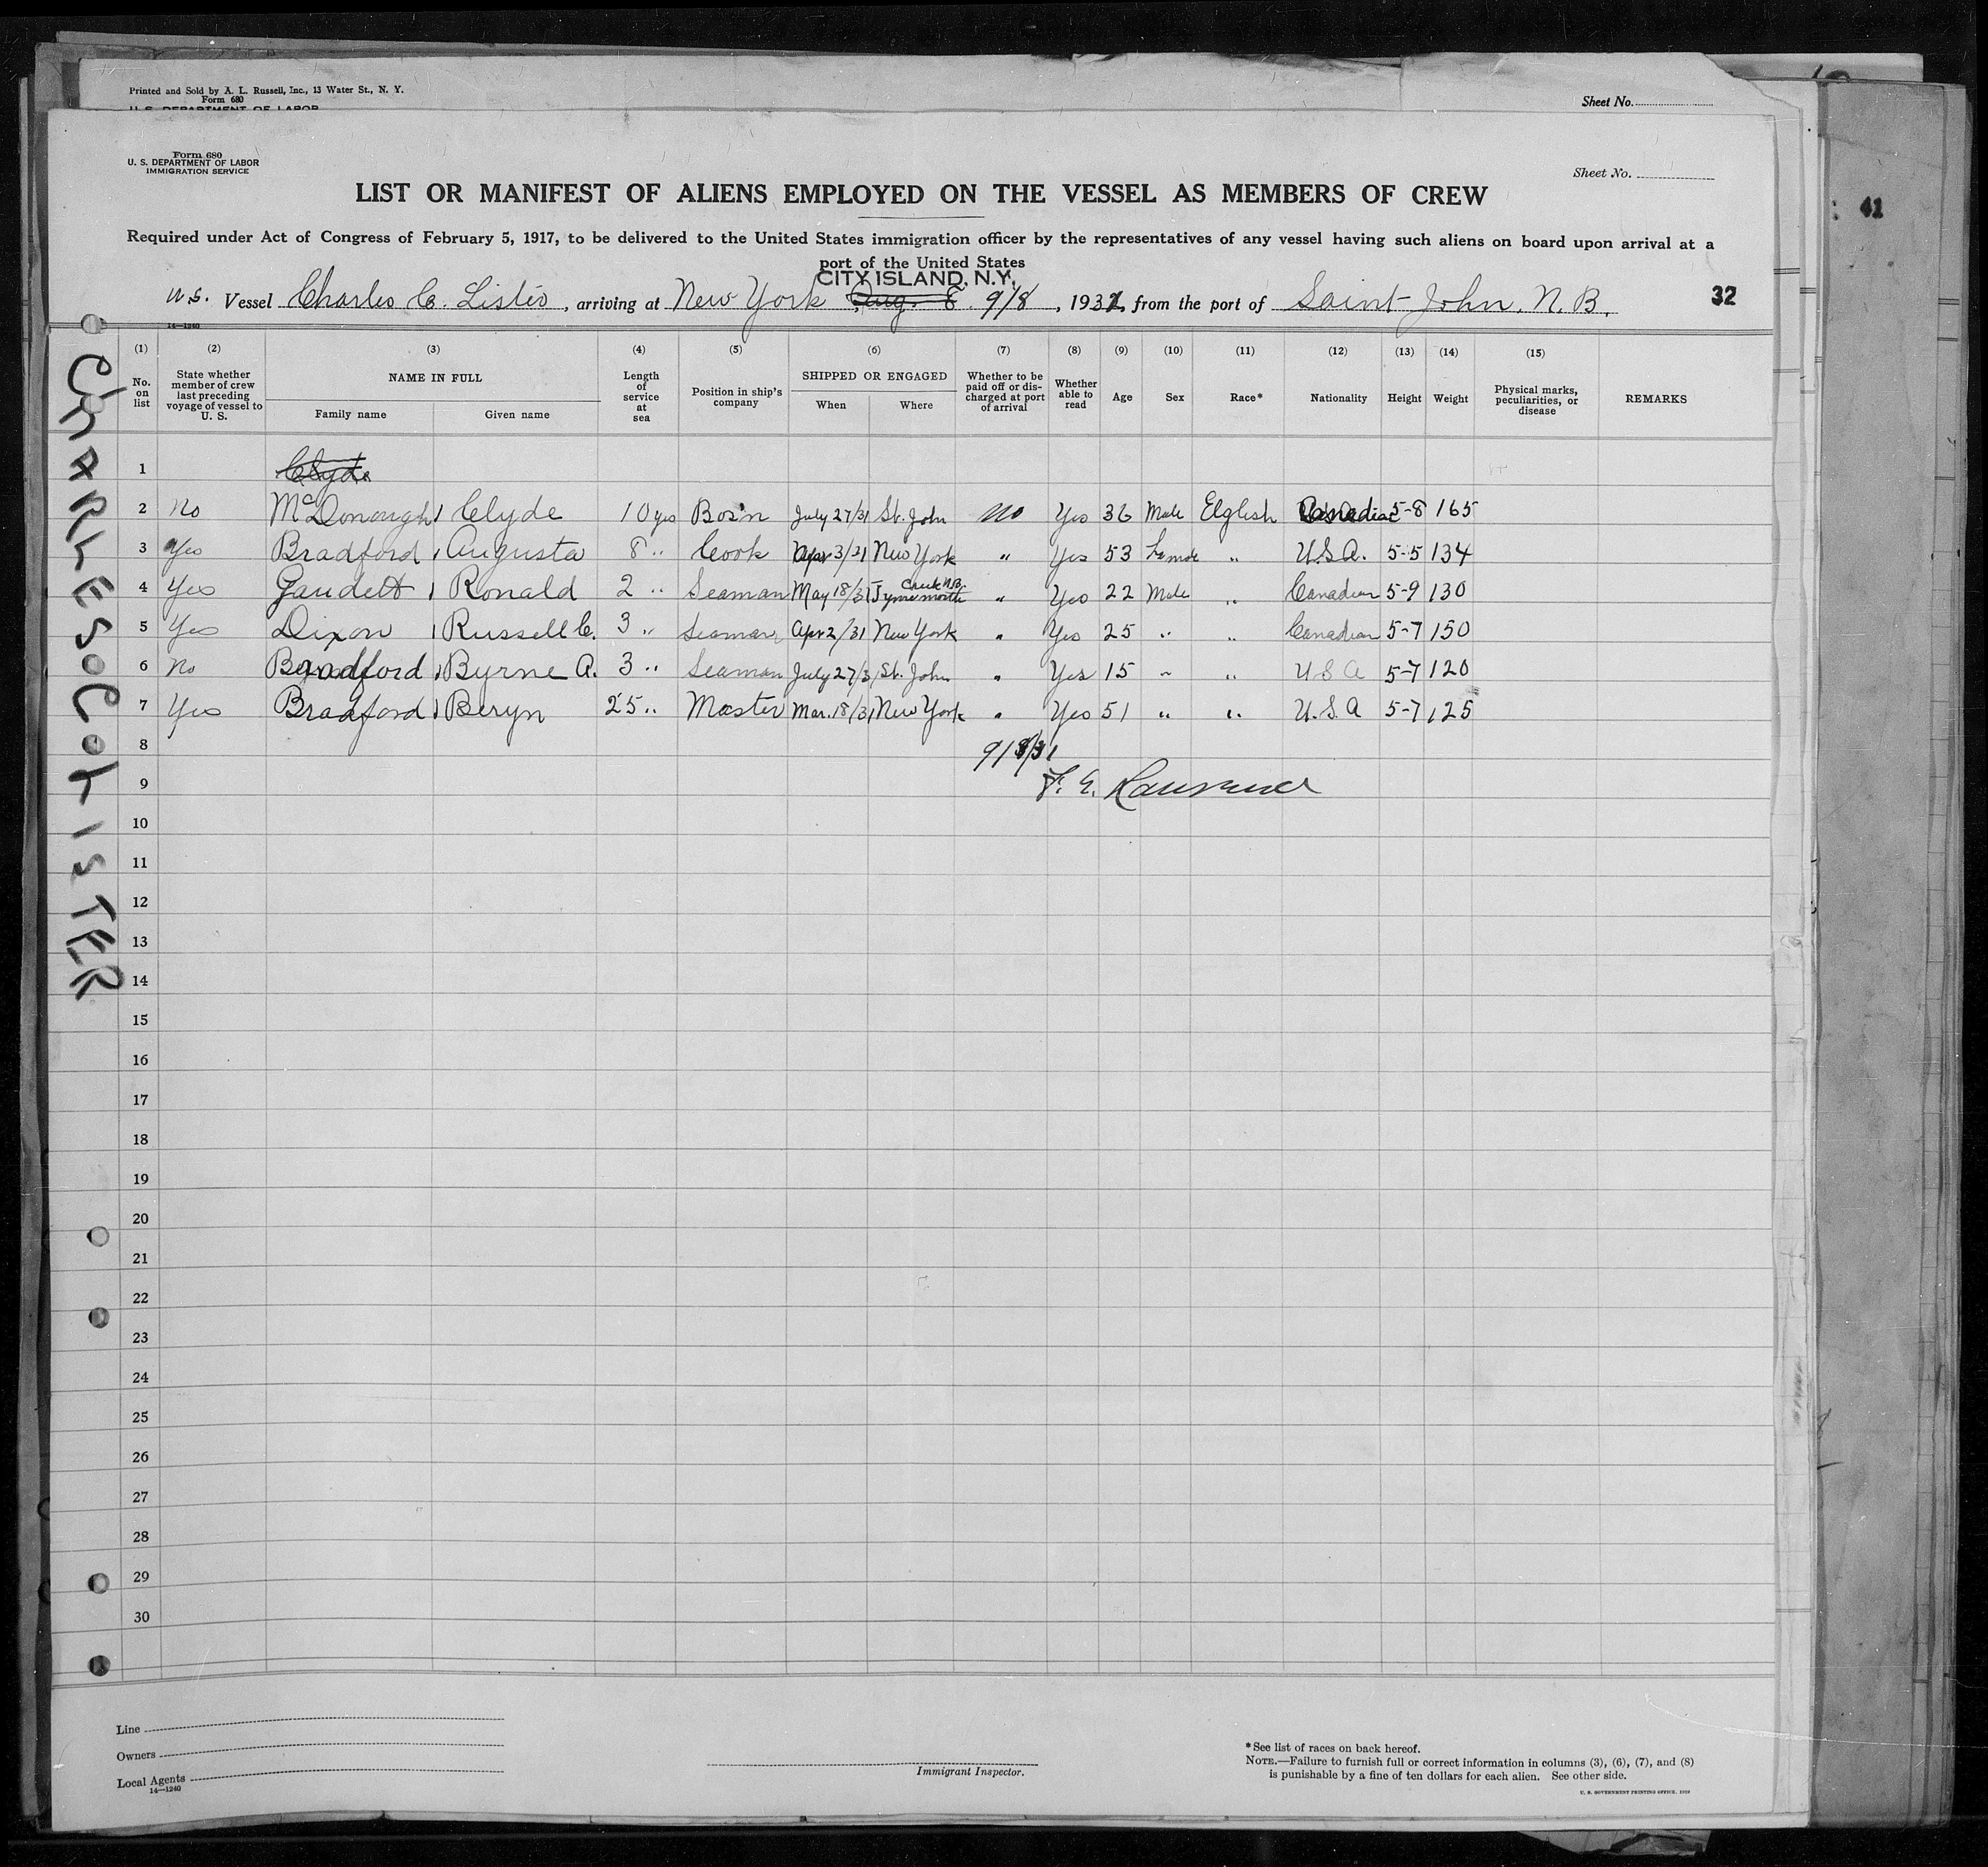 Printed and Sold by A. L. Russell, Inc., 13 Water St., N. Y.
Form 680
U. S. DEPARTMENT OF LABOR
Sheet No.
Form 680
U. S. DEPARTMENT OF LABOR
IMMIGRATION SERVICE
Sheet No.
41
LIST OR MANIFEST OF ALIENS EMPLOYED ON THE VESSEL AS MEMBERS OF CREW
Required under Act of Congress of February 5, 1917, to be delivered to the United States immigration officer by the representatives of any vessel having such aliens on board upon arrival at a
port of the United States
CITY ISLAND, N.Y.
U.S. Vessel Charles C. Lister, arriving at New York, Aug. 8 9/8, 1931, from the port of Saint John, N. B. 32
14—1240
(1) (2) (3) (4) (5) (6) (7) (8) (9) (10) (11) (12) (13) (14) (15)
No. on list State whether member of crew last preceding voyage of vessel to U. S. NAME IN FULL Family name Given name Length of service at sea Position in ship's company SHIPPED OR ENGAGED When Where Whether to be paid off or discharged at port of arrival Whether able to read Age Sex Race* Nationality Height Weight Physical marks, peculiarities, or disease REMARKS
CHARLES C LISTER
1 Clyde
2 No McDonough Clyde 10 yrs Bos'n July 27/31 St. John No Yes 36 Male Elglish Canadian 5-8 165
3 Yes Bradford Augusta 8 " Cook Apr 3/31 New York " Yes 53 Female " U.S.A. 5-5 134
4 Yes Gaudett Ronald 2 " Seaman May 18/31 Tynemouth Creek N.B. " Yes 22 Male " Canadian 5-9 130
5 Yes Dixon Russell C. 3 " Seaman Apr 2/31 New York " Yes 25 " " Canadian 5-7 150
6 No Bradford Byrne A. 3 " Seaman July 27/31 St. John " Yes 15 " " U S A 5-7 120
7 Yes Bradford Beryn 25 " Master Mar. 18/31 New York " Yes 51 " " U.S.A 5-7 125
8 9/8/31
9 F. E. Lawrence
10
11
12
13
14
15
16
17
18
19
20
21
22
23
24
25
26
27
28
29
30
Line
Owners
Local Agents
14—1240
Immigrant Inspector.
*See list of races on back hereof.
NOTE.—Failure to furnish full or correct information in columns (3), (6), (7), and (8)
is punishable by a fine of ten dollars for each alien. See other side.
U. S. GOVERNMENT PRINTING OFFICE